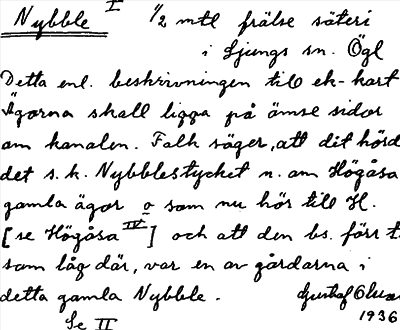 Nybble I 1/2 mtl frälse säteri
i Ljungs sn. Ögl
Detta enl. beskrivningen till ek-kart
Ägorna skall ligga på ömse sidor
om kanalen. Falk säger, att dit hörd
det s.k. Nybblestycket n. om Högåsa
gamla ägor o som nu hör till H.
[se Högåsa IV] och att den bs. förr t.
som låg där, var en av gårdarna i
detta gamla Nybble. Gustaf
1936
Se II